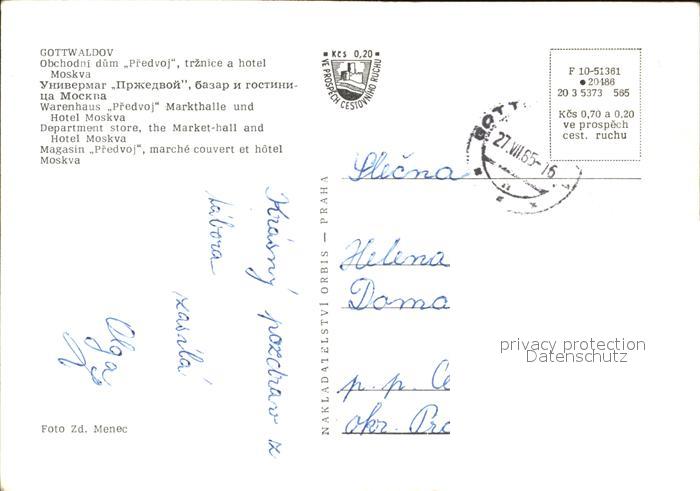 GOTTWALDOV
Obchodní dům „Předvoj“, tržnice a hotel
Moskva
Универмаг „Пржедвой“, базар и гостини-
ца Москва
Warenhaus „Předvoj“ Markthalle und
Hotel Moskva
Department store, the Market-hall and
Hotel Moskva
Magasin „Předvoj“, marché couvert et hôtel
Moskva
Kčs 0,20
VE PROSPĚCH CESTOVNÍHO RUCHU
F 10-51361
● 20486
20 3 5373 565
Kčs 0,70 a 0,20
ve prospěch
cest. ruchu
GOTT
27.VII.65-16
NAKLADATELSTVÍ ORBIS — PRAHA
Krásný pozdrav z
tábora
zasílá
Olga
Slečna
Helena
Doma
p. p.
okr.
privacy protection
Datenschutz
Foto Zd. Menec